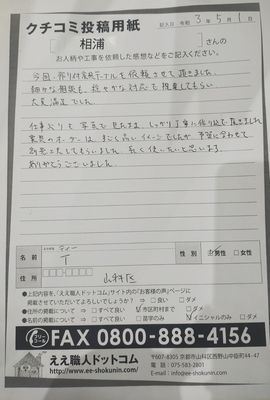 クチコミ投稿用紙
記入日 令和 3年 5月 1日
[ 相浦 ]さんの
お人柄や工事を依頼した感想などをご記入ください。
今回、作り付けテーブルを依頼させて頂きました。
細かな相談も、穏やかな対応で提案してもらい
大満足でした。
仕事ぶりも写真で見たまま、しっかり丁寧に作り込んで頂きました。
家具のオーダーは、すごく高いイメージでしたが、予算に合わせて
ありがとうございました。
名前
ティー
T
性別
男性
女性
住所
山科区
●上記内容を、「ええ職人ドットコム」サイト内の「お客様の声」ページに
掲載させていただいてよろしいでしょうか? ⇒ □良い □ダメ
●住所の掲載について ⇒ □すべて良い □市区町村まで □ダメ
●名前の掲載について ⇒ □すべて良い □苗字のみ □イニシャルのみ □ダメ
FAX 0800-888-4156
ええ職人ドットコム
http://www.ee-shokunin.com/
〒607-8305 京都市山科区西野山中臣町44-47
電話：075-583-2801
Email：info@ee-shokunin.com